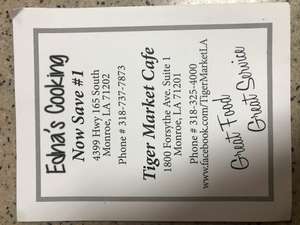 Edna's Cooking
Now Save #1
4399 Hwy 165 South
Monroe, LA 71202
Phone # 318-737-7873
Tiger Market Cafe
1800 Forsythe Ave. Suite 1
Monroe, LA 71201
Phone # 318-325-4000
www.facebook.com/TigerMarketLA
Great Food
Great Service